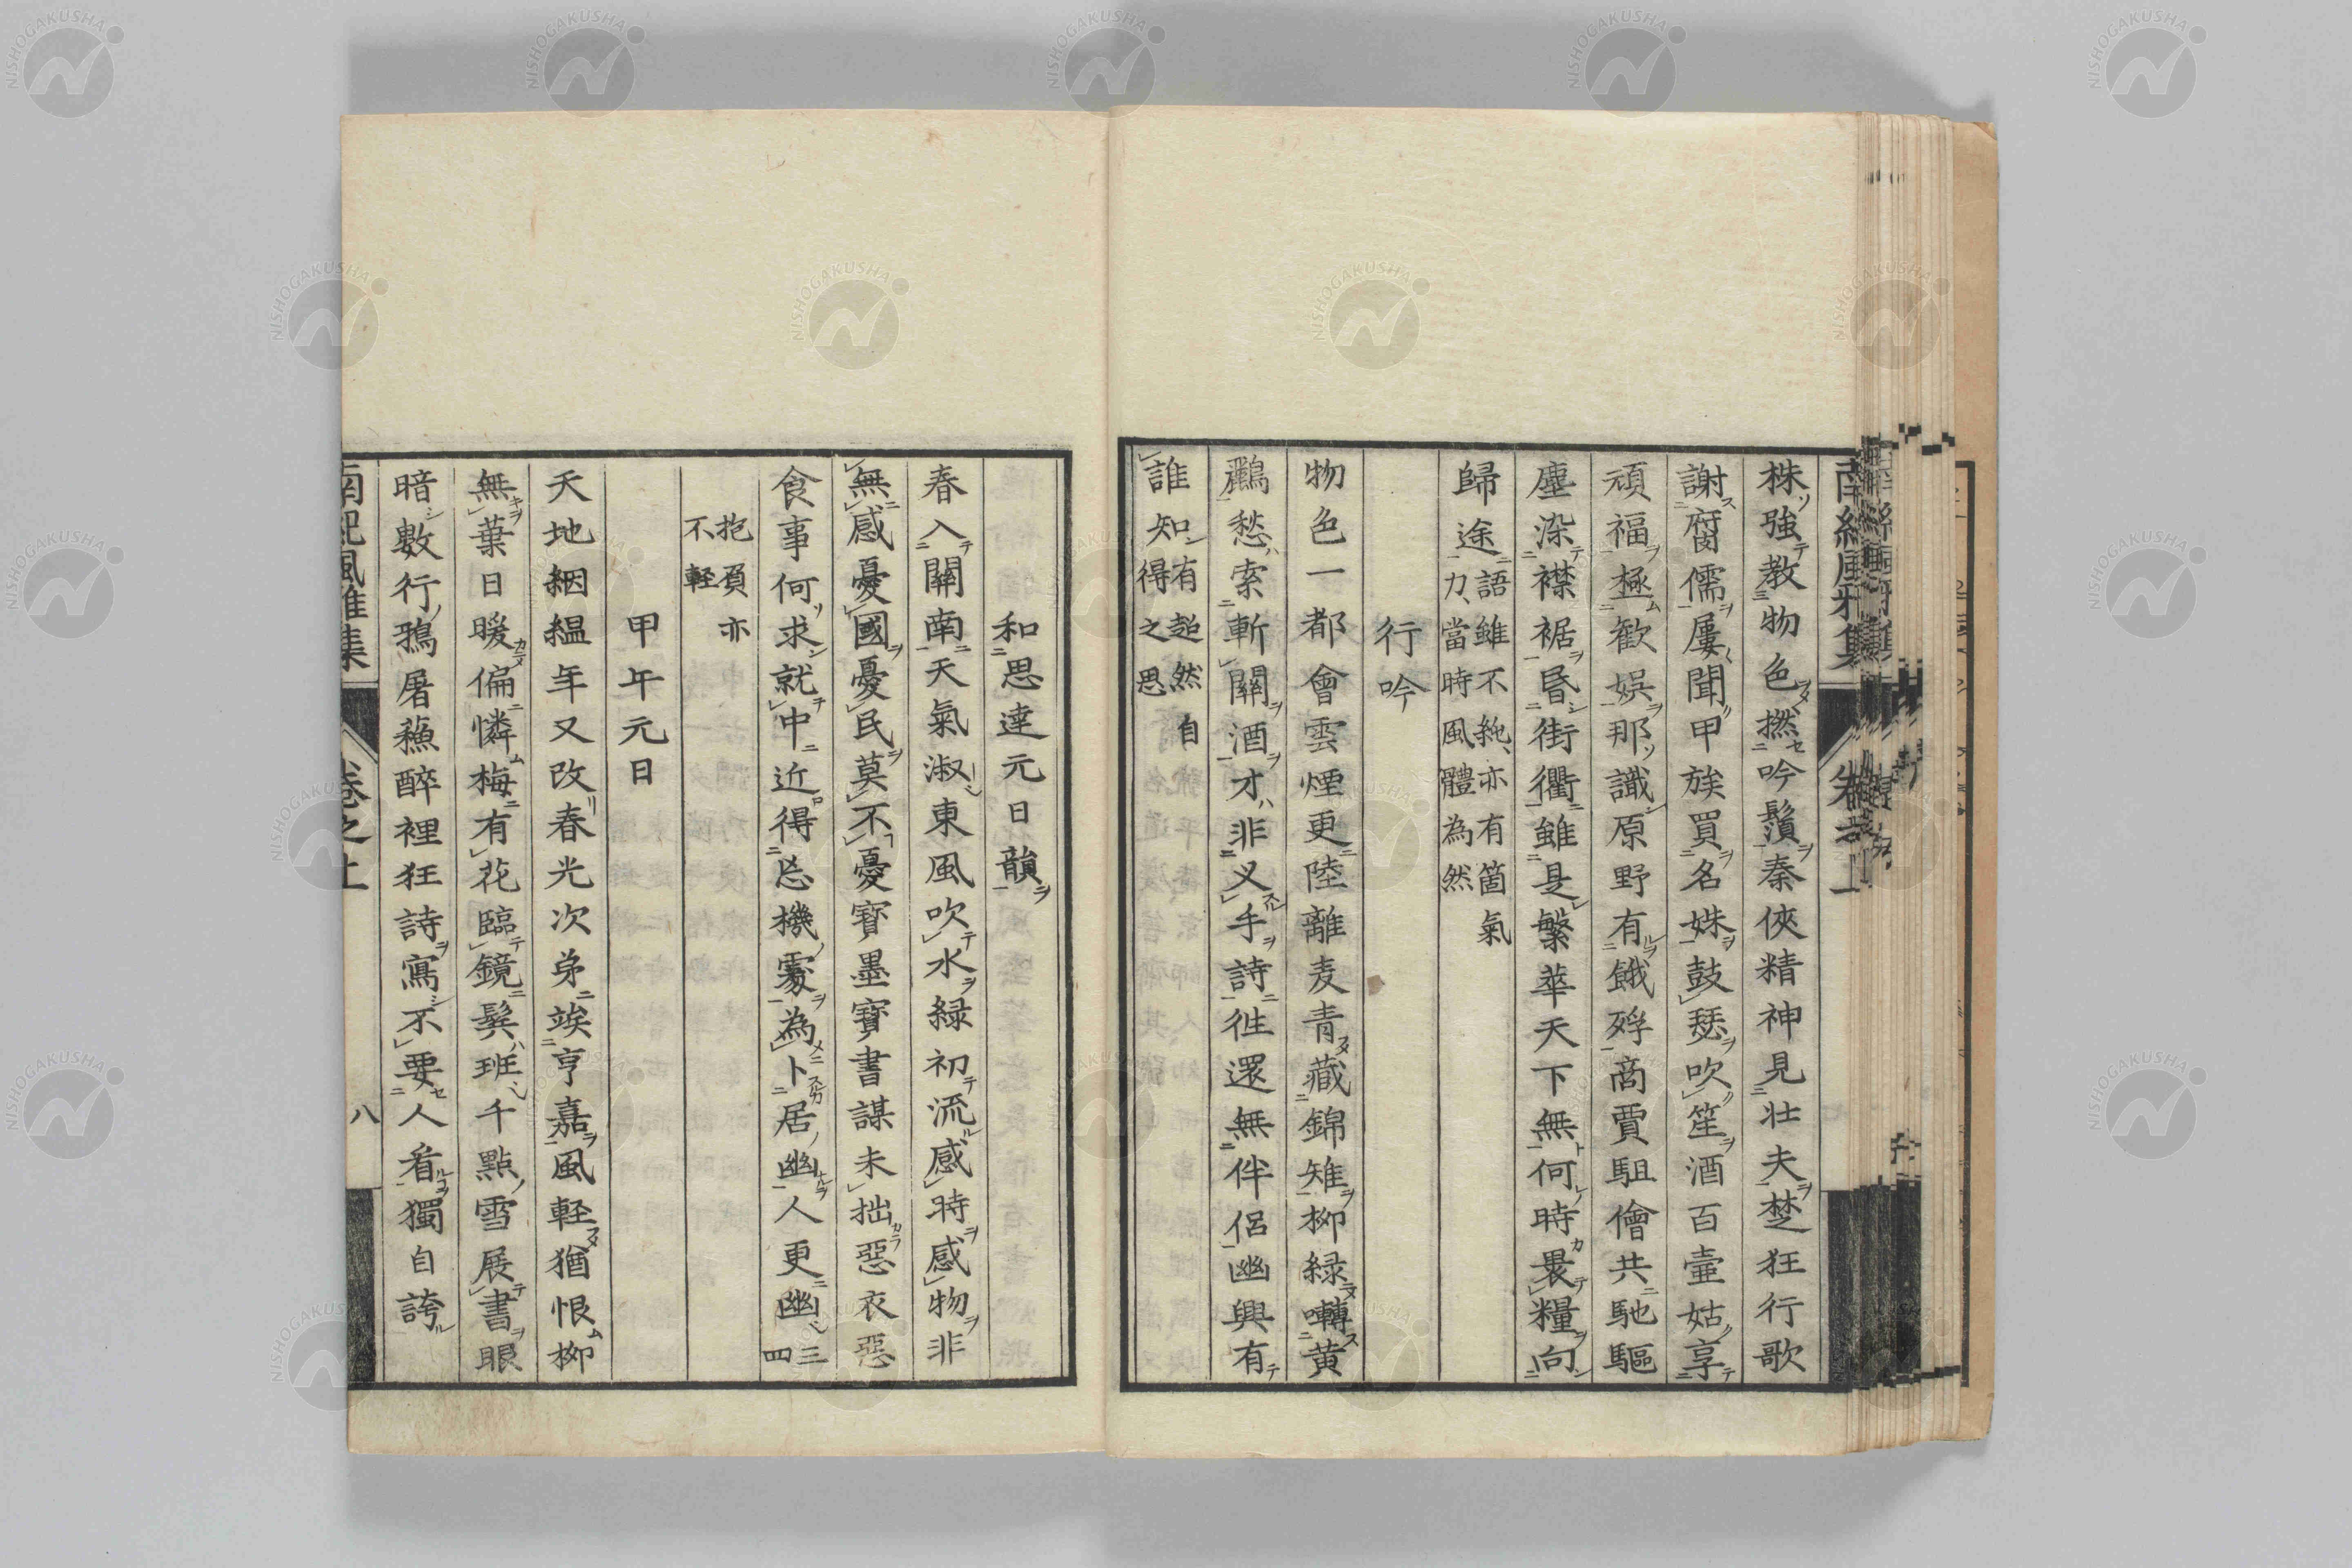 株強教物色撚吟鬚秦俠精神見壮夫楚狂行歌
謝腐儒屢聞甲族買名姝鼓瑟吹笙酒百壷姑享
頑福極歓娯那識原野有餓殍商賈駔儈共馳驅
塵染襟裾昏街衢雖是繁華天下無何時褁糧向
歸途
語雖不純、亦有箇氣
力、當時風體為然
行吟
物色一都會雲煙更陸離麦青藏錦雉柳緑囀黄
鸝愁索斬關酒才非叉手詩徃還無伴侶幽興有
誰知
有趂然自
得之思
和思達元日韻
春入關南南天氣淑東風吹水緑初流感時感物非
無感憂國憂民莫不憂寳墨寳書謀未拙惡衣惡
食事何求就中近得忘機處為卜居幽人更幽
三
四
抱負亦
不軽
甲午元日
天地絪縕年又改春光次第竢亨嘉風軽猶恨柳
無葉日暖偏憐梅有花臨鏡鬂班千點雪展書眼
暗數行鴉屠蘓醉裡狂詩寫不要人看獨自誇
南紀風雅集
卷之上
八
NISHOGAKUSHA